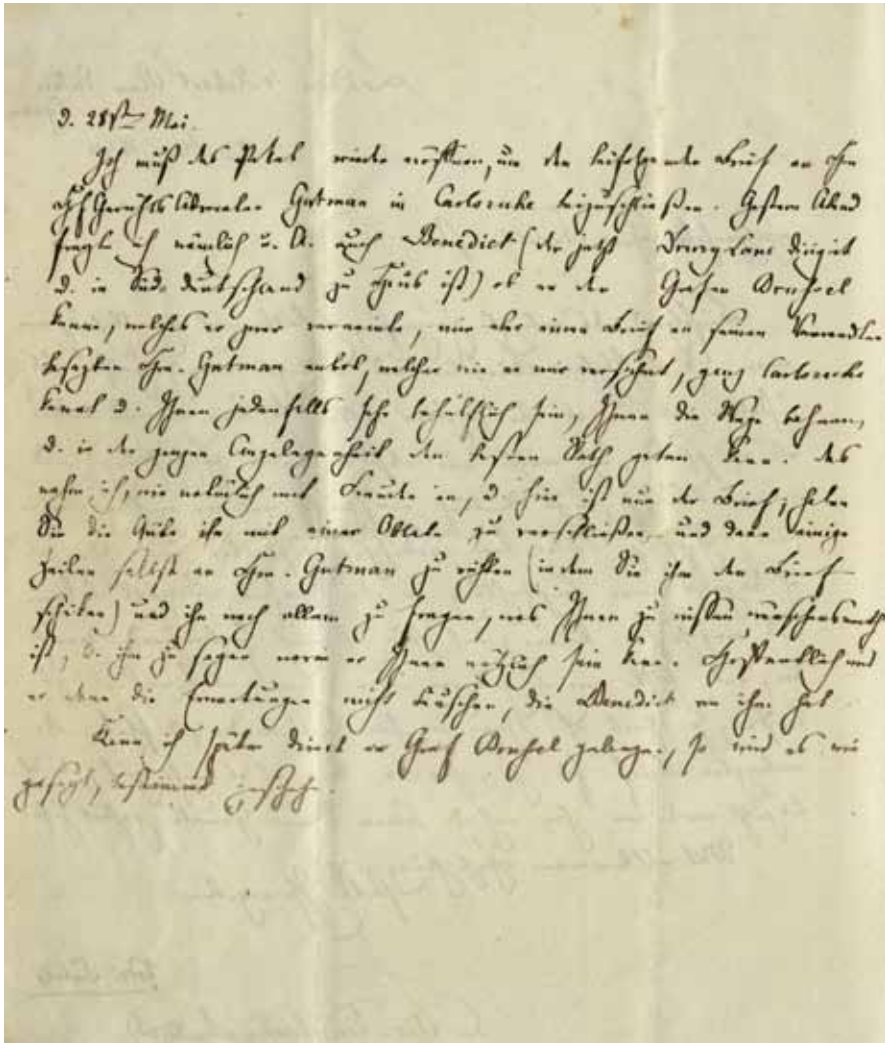 d. 28ste Mai.
Ich muß das Paket wieder eröffnen, um den beifolgenden Brief an Hrn
Gerichts Advocaten Gutman in Carlsruhe beizuschließen. Gestern Abend
fragte ich nämlich u. A. auch Benedict (der jetzt Drury Lane dirigirt
u. in Süd-Deutschland zu Haus ist) ob er den Grafen
kenne, welches er zwar verneinte, mir aber einen Brief an seinen Verwandten
besagten Hrn. Gutman anbot, welcher wie er mir versichert, ganz Carlsruhe
kennt u. Ihnen jedenfalls sehr behülflich sein, Ihnen die Wege bahnen,
u. in der ganzen Angelegenheit den besten Rath geben kann. Das
nahm ich, wie natürlich mit Freude an, u. hier ist nun der Brief; haben
Sie die Güte ihn mit einer Oblate zu verschließen und dann einige
Zeilen selbst an Hrn. Gutman zu richten (indem Sie ihm den Brief
schicken) und ihn nach allem zu fragen, was Ihnen zu wissen wünschenswerth
ist, u. ihm zu sagen worin er Ihnen nützlich sein kann. Hoffentlich wird
er dann die Erwartungen nicht täuschen, die Benedict von ihm hat.
Kann ich später direct an Graf gelangen, so wird es wie
gesagt, bestimmt geschehn.